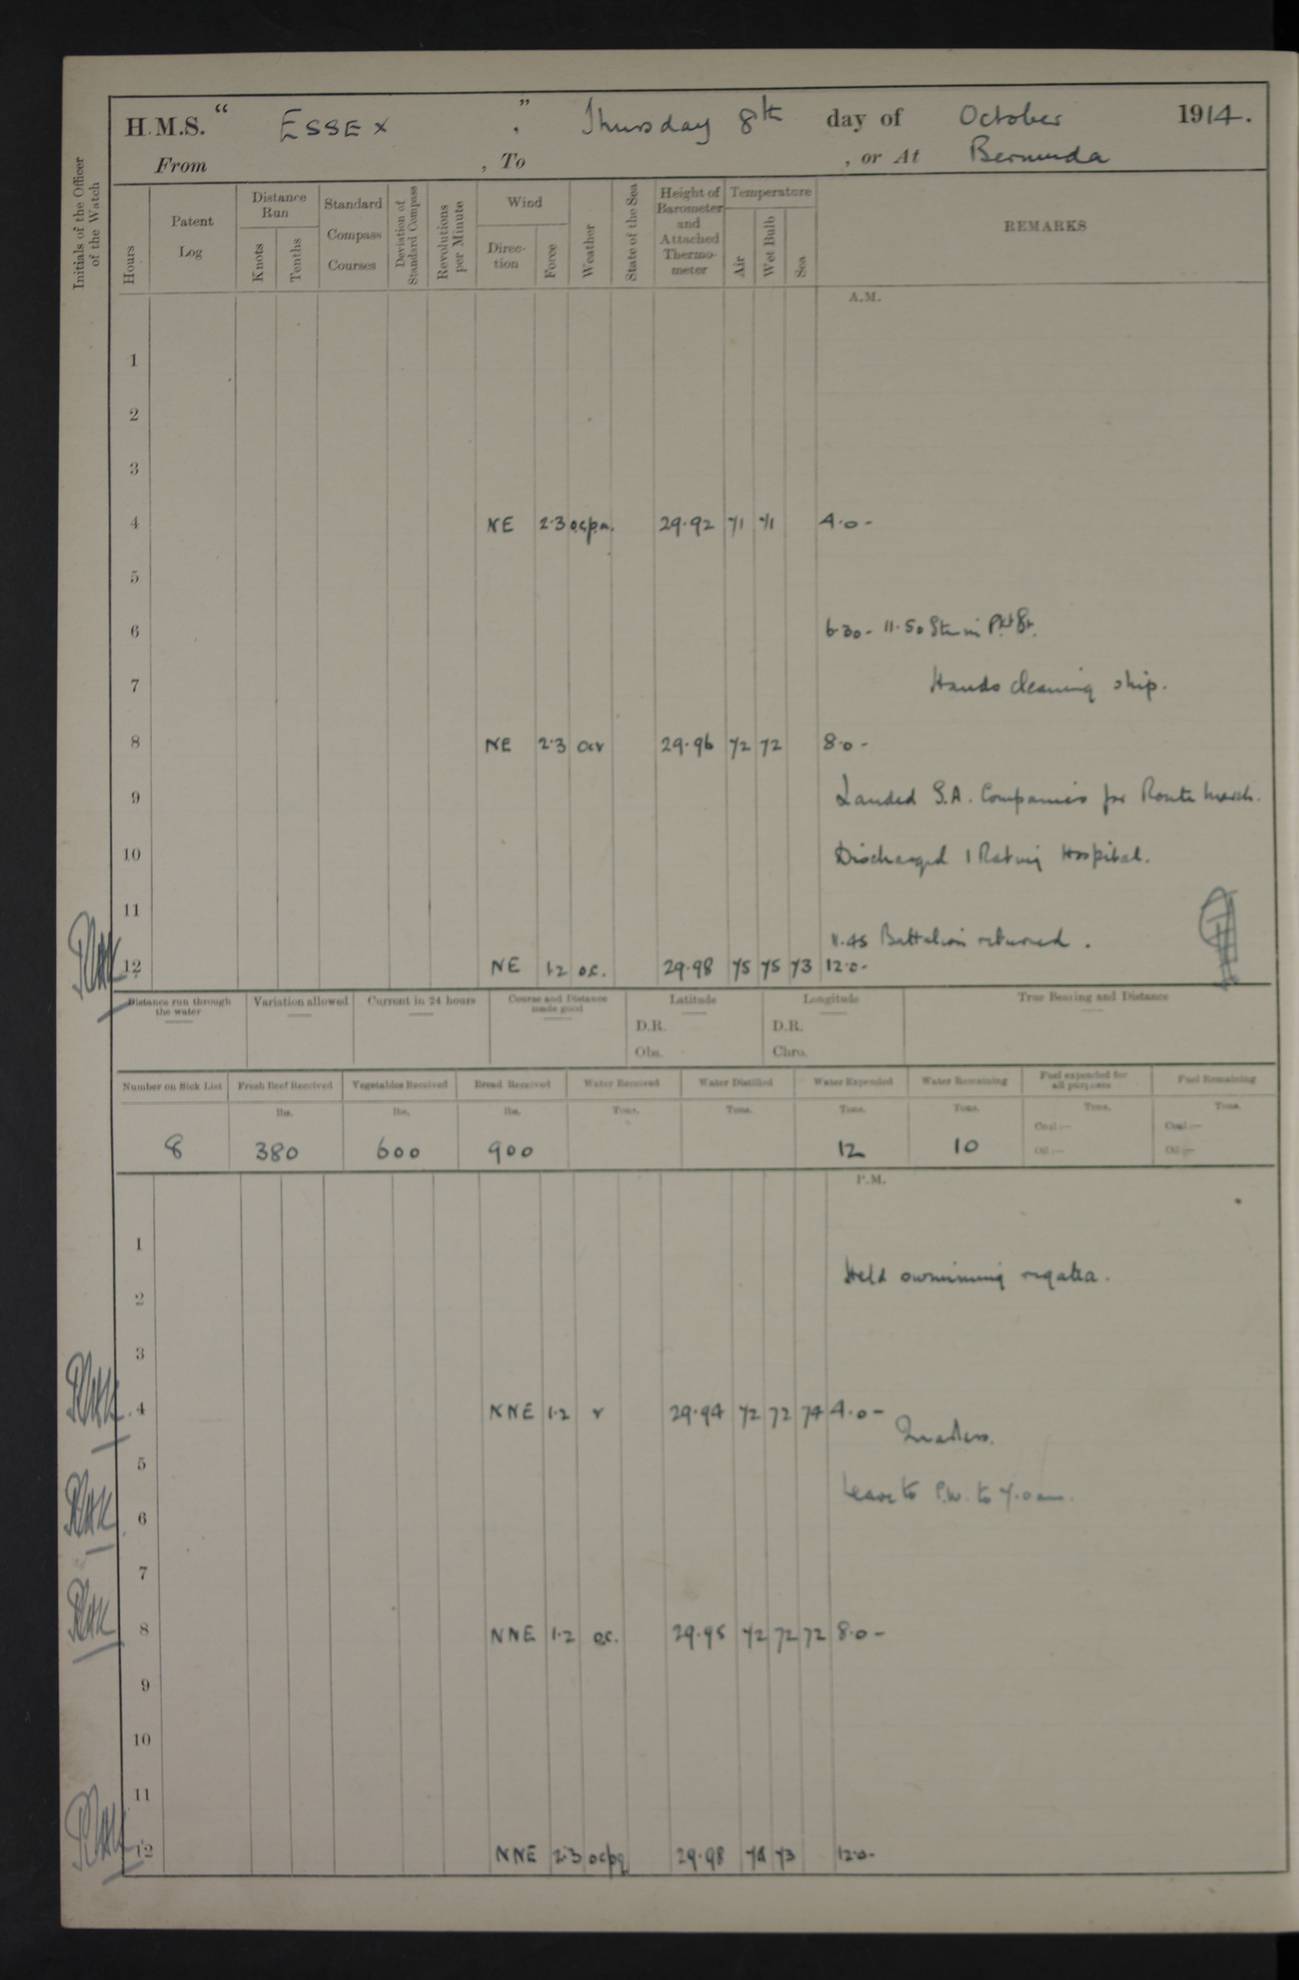 H.M.S. " ESSEX " Thursday 8th day of October 1914.
From , To , or At Bermuda
Initials of the Officer of the Watch
Hours
Patent Log
Distance Run
Knots
Tenths
Standard Compass Courses
Deviation of Standard Compass
Revolutions per Minute
Wind
Direction
Force
Weather
State of the Sea
Height of Barometer and Attached Thermometer
Temperature
Air
Wet Bulb
Sea
REMARKS
A.M.
1
2
3
4 NE 2·3 29·92 71 71 4·0-
5
6 6·30- 11·50
7 Hands cleaning ship.
8 NE 2·3 ocr 29·96 72 72 8·0-
9 Landed S.A. Companies for Route March.
10 Discharged 1 Rating Hospital.
11
11·45 Battalion returned.
12 NE 1·2 o.c. 29·98 75 75 73 12·0-
Distance run through the water
Variation allowed
Current in 24 hours
Course and Distance made good
Latitude
D.R.
Obs.
Longitude
D.R.
Chro.
True Bearing and Distance
Number on Sick List Fresh Beef Received Vegetables Received Bread Received Water Received Water Distilled Water Expended Water Remaining Fuel expended for all purposes Fuel Remaining
lbs. lbs. lbs. Tons. Tons. Tons. Tons. Tons. Tons.
Coal:— Coal:—
8 380 600 900 12 10 Oil:— Oil:—
P.M.
1
Held swimming regatta.
2
3
4 NNE 1·2 r 29·94 72 72 74 4·0-
Quarters.
5
Leave to P.W. to 7·0 am.
6
7
8 NNE 1·2 o.c. 29·95 72 72 72 8·0-
9
10
11
12 NNE 2·3 ocpq 29·98 74 73 12·0-